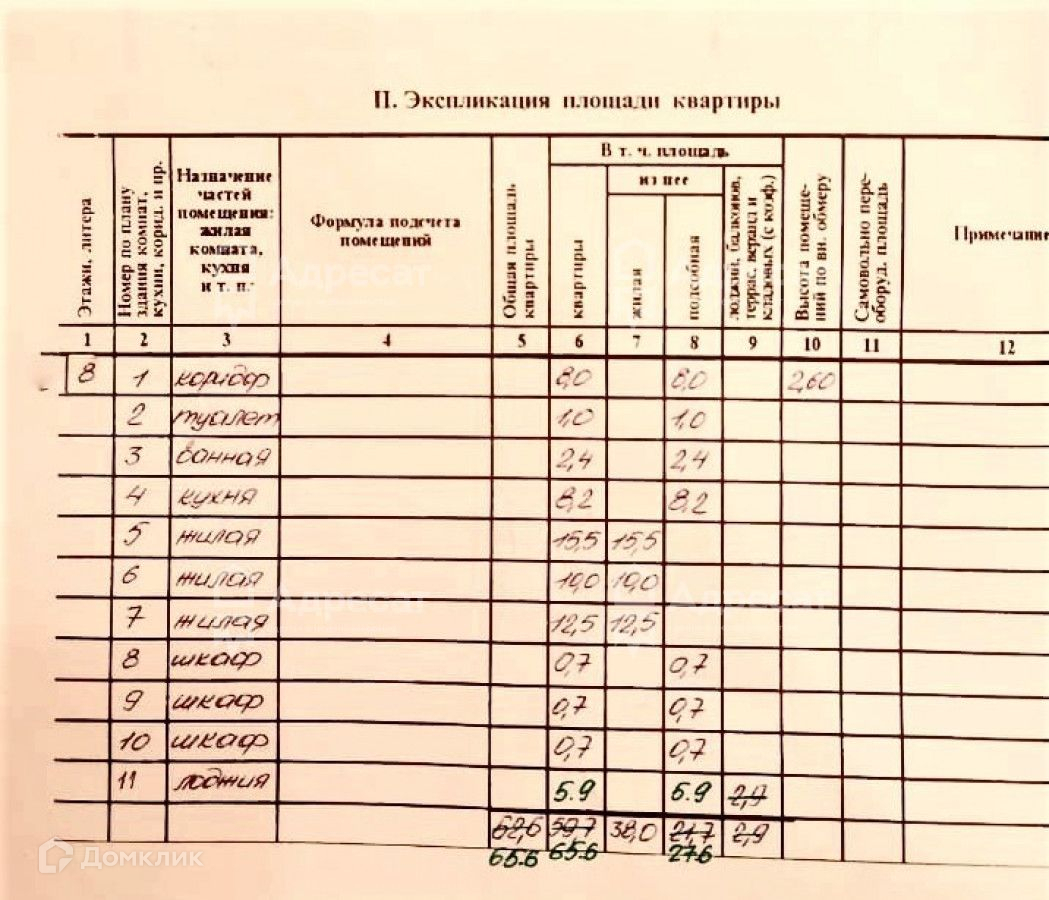 II. Экспликация площади квартиры
Этажи, литера
Номер по плану здания комнат, кухни, корид. и пр.
Назначение частей помещения: жилая комната, кухня и т. п.:
Формула подсчета помещений
Общая площадь квартиры
В т. ч. площадь
из нее
квартиры
жилая
подсобная
лоджий, балконов, террас, веранд и кладовых (с коэф.)
Высота помещений по вн. обмеру
Самовольно переоборуд. площадь
Примечание
1 2 3 4 5 6 7 8 9 10 11 12
8 1 коридор 8,0 8,0 2,60
2 туалет 1,0 1,0
3 ванная 2,4 2,4
4 кухня 8,2 8,2
5 жилая 15,5 15,5
6 жилая 10,0 10,0
7 жилая 12,5 12,5
8 шкаф 0,7 0,7
9 шкаф 0,7 0,7
10 шкаф 0,7 0,7
11 лоджия 5.9 5.9 2,9
62,6 59,7 38,0 21,7 2,9
65.6 65.6 27.6
Адресат
Адресат
Адресат
Адресат
Домклик